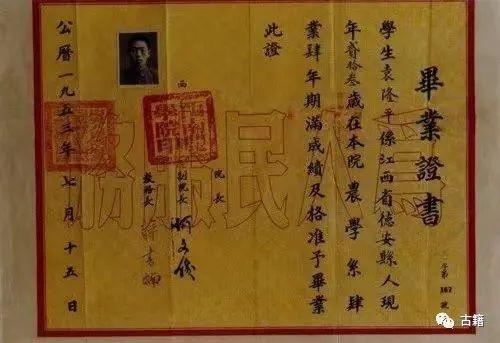 畢業證書
字第
號
學生袁隆平係江西省德安縣人現
年貳拾叁歲在本院農學系肆
業肆年期滿成績及格准予畢業
此證
院長
副院長
教務長
公曆一九五三年七月十五日
爲人民服務
古籍